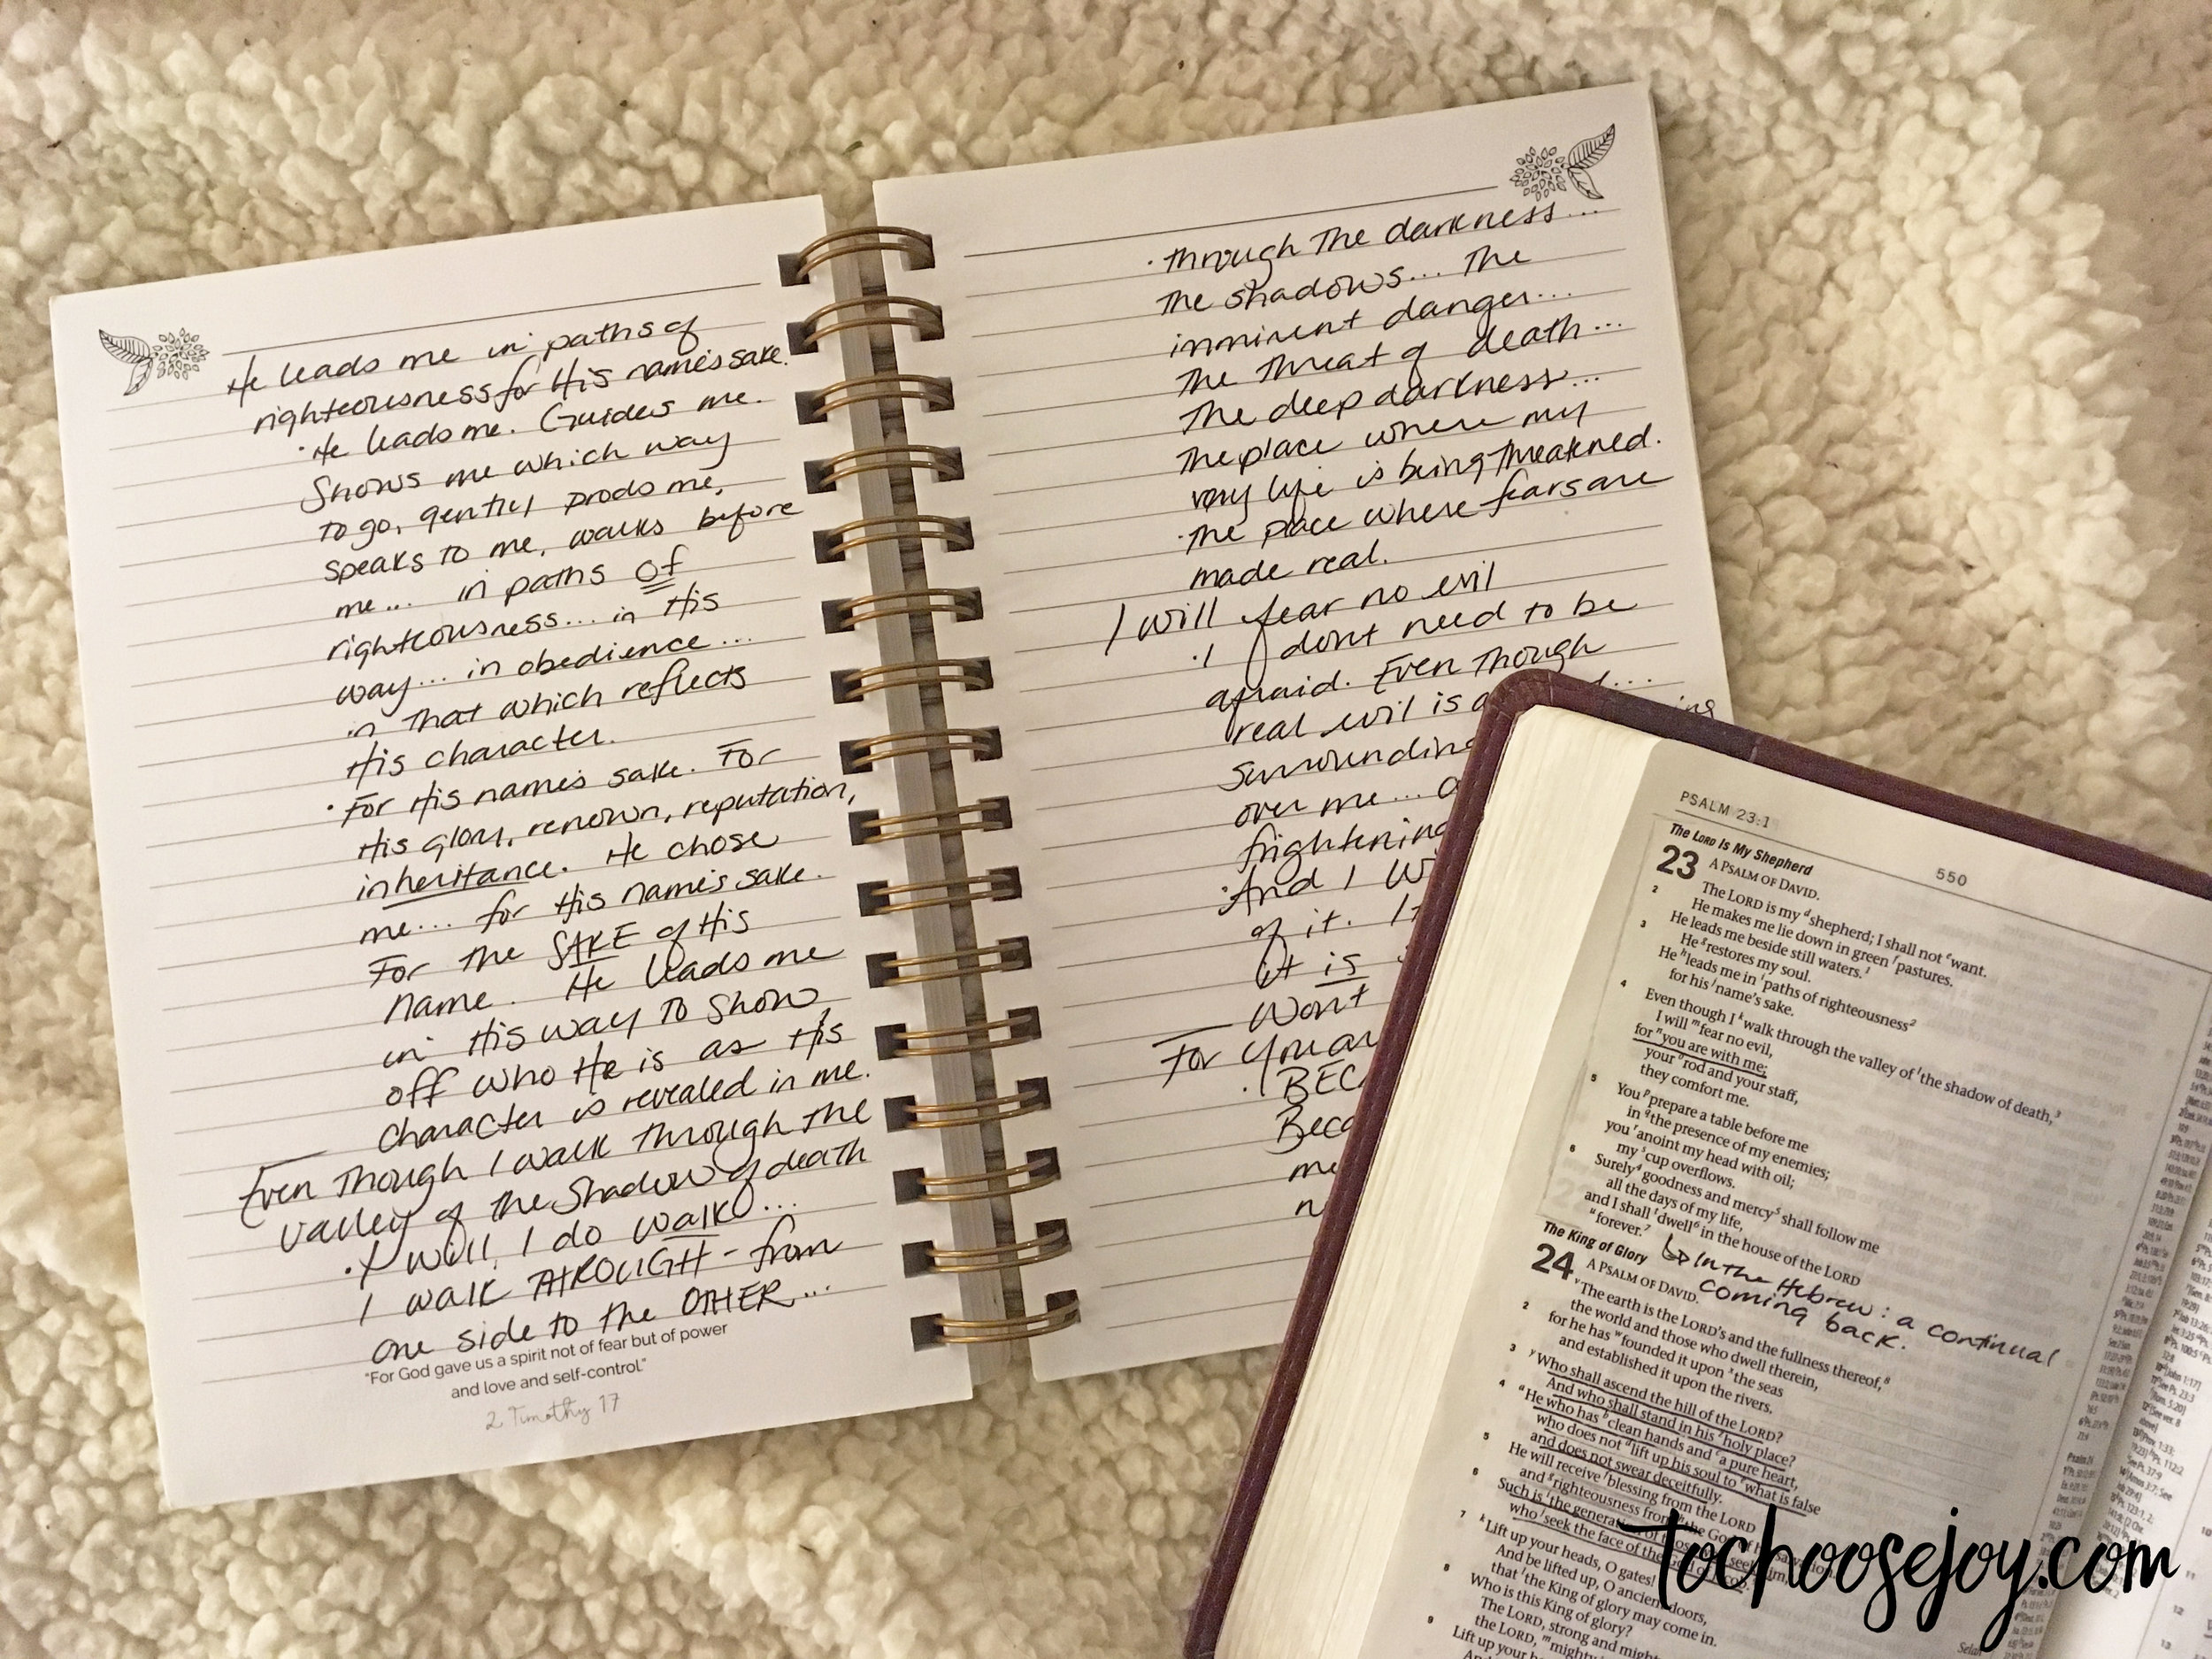 He leads me in paths of
righteousness for His name's sake.
· He leads me. Guides me.
Shows me which way
to go, gently prods me,
speaks to me, walks before
me... in paths of
righteousness... in His
way... in obedience...
in that which reflects
His character.
· For His name's sake. For
His glory, renown, reputation,
inheritance. He chose
me... for His name's sake.
For the SAKE of His
name. He leads me
in His way to show
off who He is as His
character is revealed in me.
Even though I walk through the
valley of the shadow of death
· I will, I do walk...
I walk THROUGH - from
one side to the OTHER...
"For God gave us a spirit not of fear but of power
and love and self-control."
2 Timothy 1:7
· through the darkness...
the shadows... the
imminent danger...
the threat of death...
the deep darkness...
the place where my
very life is being threatened.
· the place where fears are
made real.
I will fear no evil
· I don't need to be
afraid. Even though
real evil is
surrounding
over me...
frightening
· And I
of it.
it is
won't
For You
me
PSALM 23:1
550
The LORD Is My Shepherd
23 A PSALM OF DAVID.
The LORD is my d shepherd; I shall not e want.
2 He makes me lie down in green f pastures.
He leads me beside still waters.1
3 He g restores my soul.
He h leads me in i paths of righteousness2
for his j name's sake.
4 Even though I k walk through the valley of l the shadow of death,3
I will m fear no evil,
for n you are with me;
your o rod and your staff,
they comfort me.
5 You p prepare a table before me
in q the presence of my enemies;
you r anoint my head with oil;
my s cup overflows.
6 Surely4 goodness and mercy5 shall follow me
all the days of my life,
and I shall t dwell6 in the house of the LORD
u forever.7
↳ In the Hebrew: a continual
coming back.
The King of Glory
24 A PSALM OF DAVID.
v The earth is the LORD's and the fullness thereof,8
the world and those who dwell therein,
2 for he has w founded it upon x the seas
and established it upon the rivers.
3 y Who shall ascend the hill of the LORD?
And who shall stand in his z holy place?
4 a He who has b clean hands and c a pure heart,
who does not d lift up his soul to e what is false
and does not swear deceitfully.
5 He will receive f blessing from the LORD
and g righteousness from h the God of his
6 Such is i the generation of those who seek him,
who j seek the face of the God of Jacob.
7 k Lift up your heads, O gates!
And be lifted up, O ancient doors,
that l the King of glory may come in.
8 Who is this King of glory?
The LORD, strong and
the LORD, m mighty
9 Lift up your
Selah
tochoosejoy.com